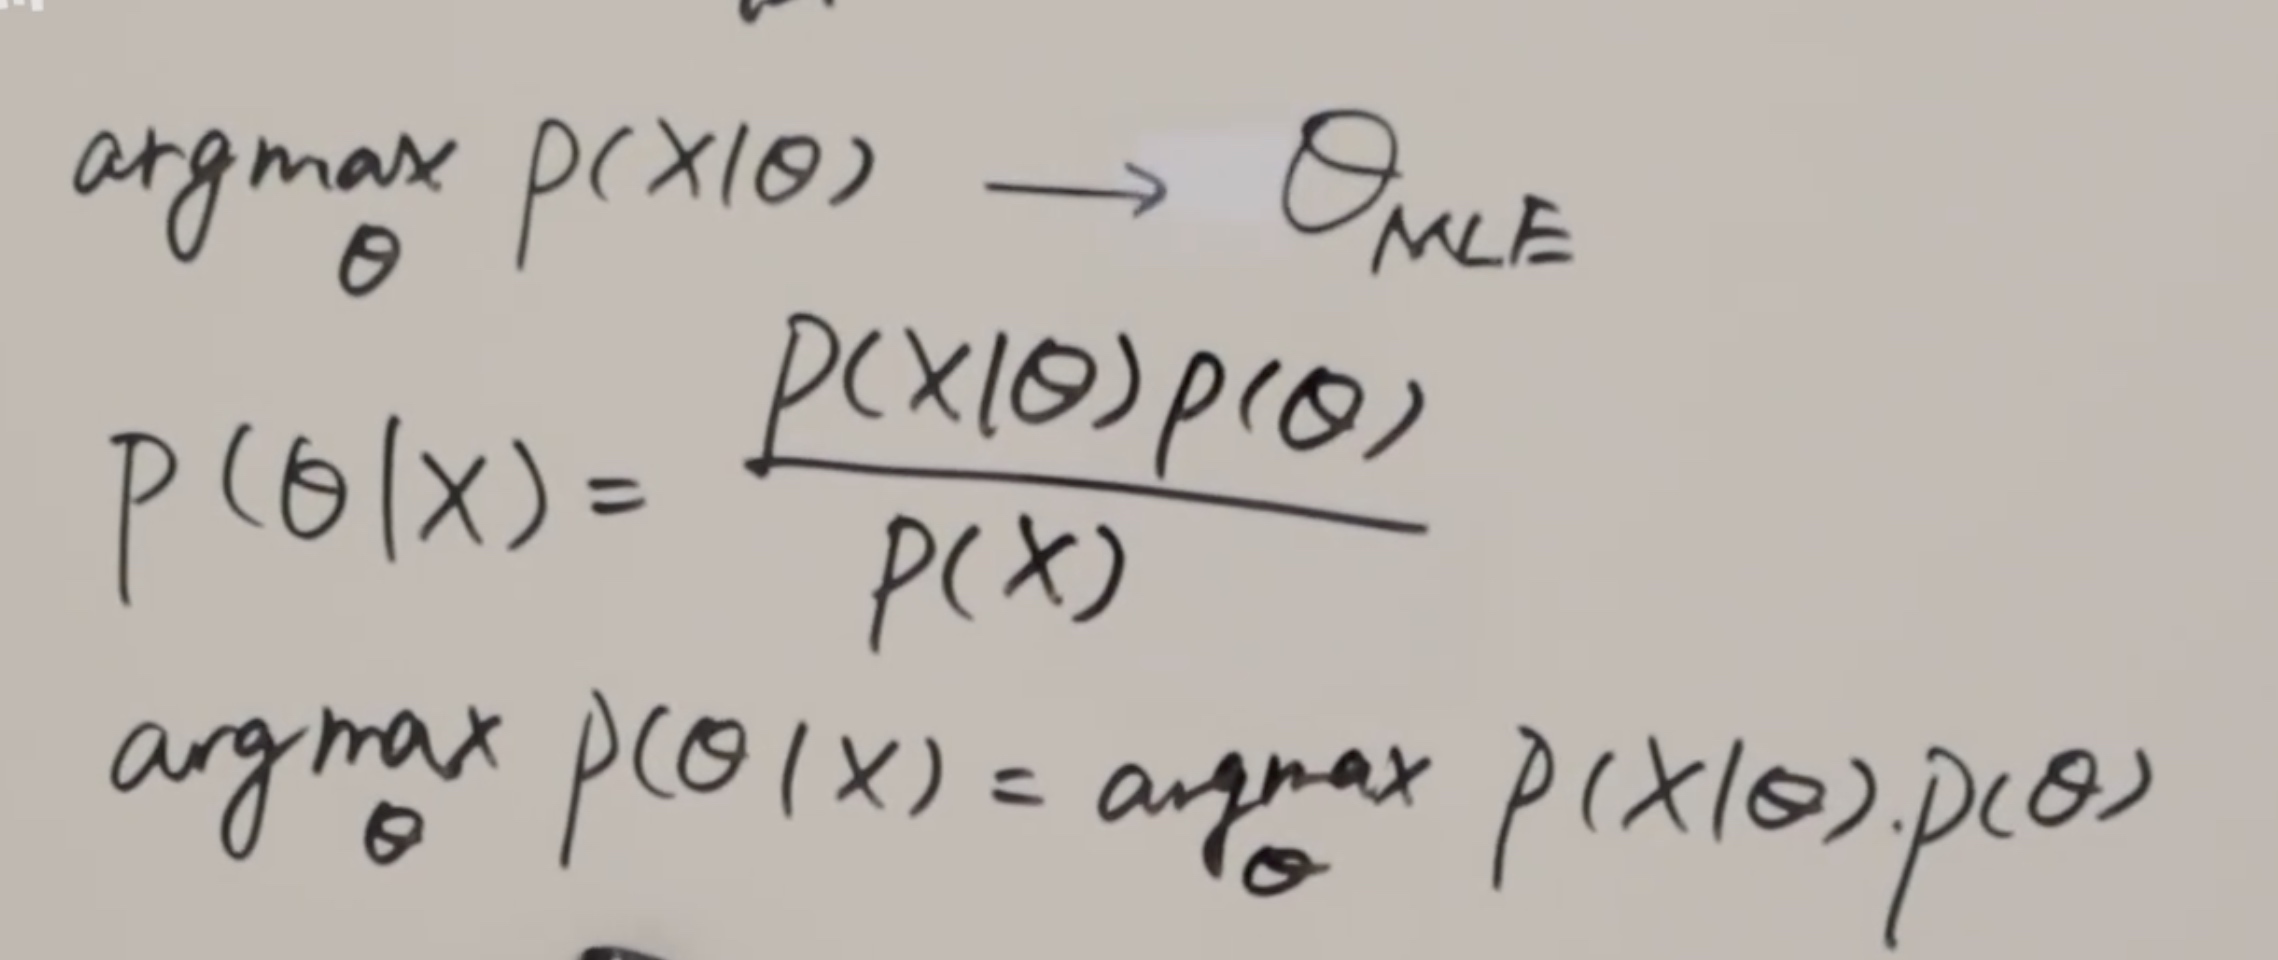 argmax_θ P(X|θ) → θ_MLE
P(θ|X) = P(X|θ)P(θ) / P(X)
argmax_θ P(θ|X) = argmax_θ P(X|θ).P(θ)